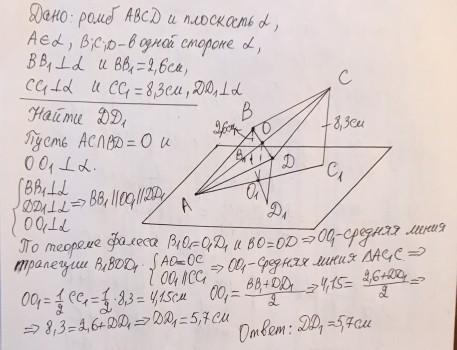 Дано: ромб ABCD и плоскость α,
A∈α, B; C; D – в одной стороне α,
BB₁⊥α и BB₁=2,6см,
CC₁⊥α и CC₁=8,3см, DD₁⊥α
Найти DD₁
Пусть AC∩BD=O и
OO₁⊥α.
{BB₁⊥α
DD₁⊥α ⇒ BB₁∥OO₁∥DD₁
OO₁⊥α
C
B
2,6см
O
8,3см
B₁
D
C₁
A
O₁
D₁
По теореме Фалеса B₁O₁=O₁D₁ и BO=OD ⇒ OO₁-средняя линия
трапеции B₁BDD₁. {AO=OC
OO₁∥CC₁ ⇒ OO₁-средняя линия ΔAC₁C ⇒
OO₁=½CC₁=½·8,3=4,15см OO₁=(BB₁+DD₁)/2 ⇒ 4,15=(2,6+DD₁)/2 ⇒
⇒ 8,3=2,6+DD₁ ⇒ DD₁=5,7см
Ответ: DD₁=5,7см